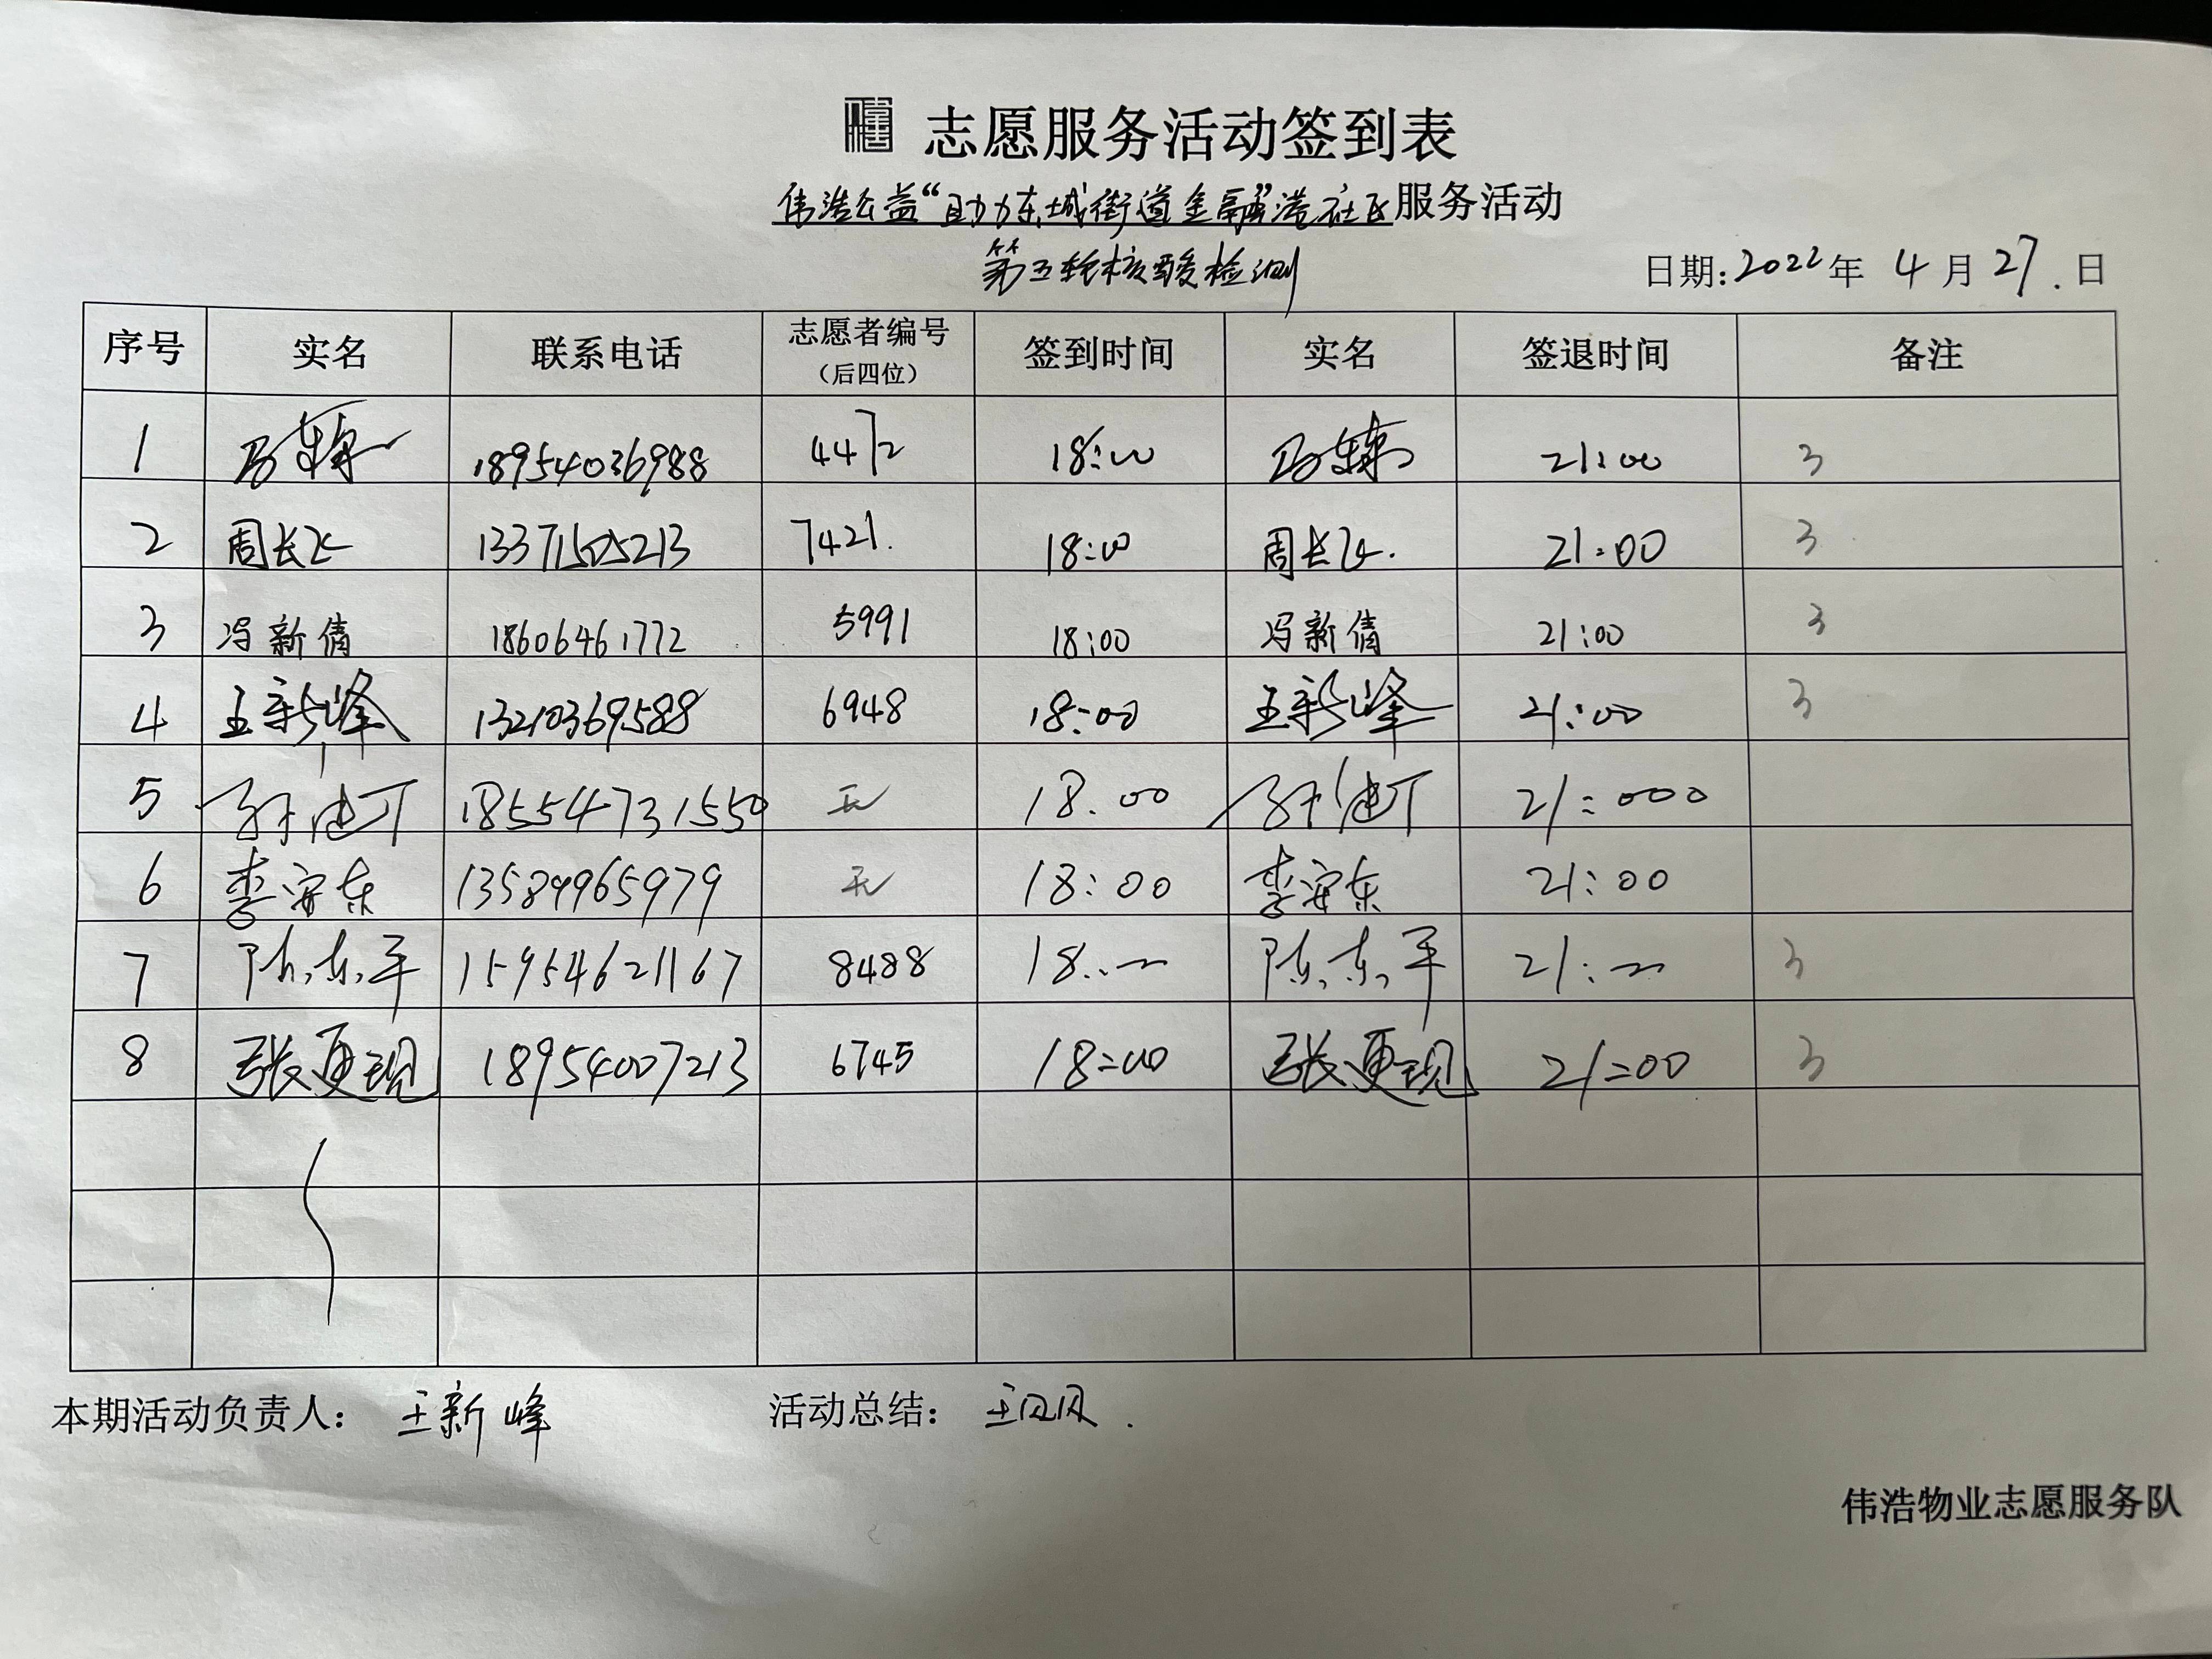 志愿服务活动签到表
伟浩公益“助力东城街道金融”港社区服务活动
第五轮核酸检测
日期:2022年 4月27.日
序号 实名 联系电话 志愿者编号（后四位） 签到时间 实名 签退时间 备注
1 18954036988 4472 18:00 21:00 3
2 周长飞 13371505213 7421. 18:00 周长飞. 21:00 3
3 冯新倩 18606461772 5991 18:00 冯新倩 21:00 3
4 王新峰 13210369588 6948 18:00 王新峰 21:00 3
5 18554731550 无 18.00 21:000
6 李安东 13589965979 无 18:00 李安东 21:00
7 陈东平 15954621167 8488 18: 陈东平 21: 3
8 张更现 18954007213 6745 18:00 张更现 21:00 3
本期活动负责人： 王新峰 活动总结：
伟浩物业志愿服务队